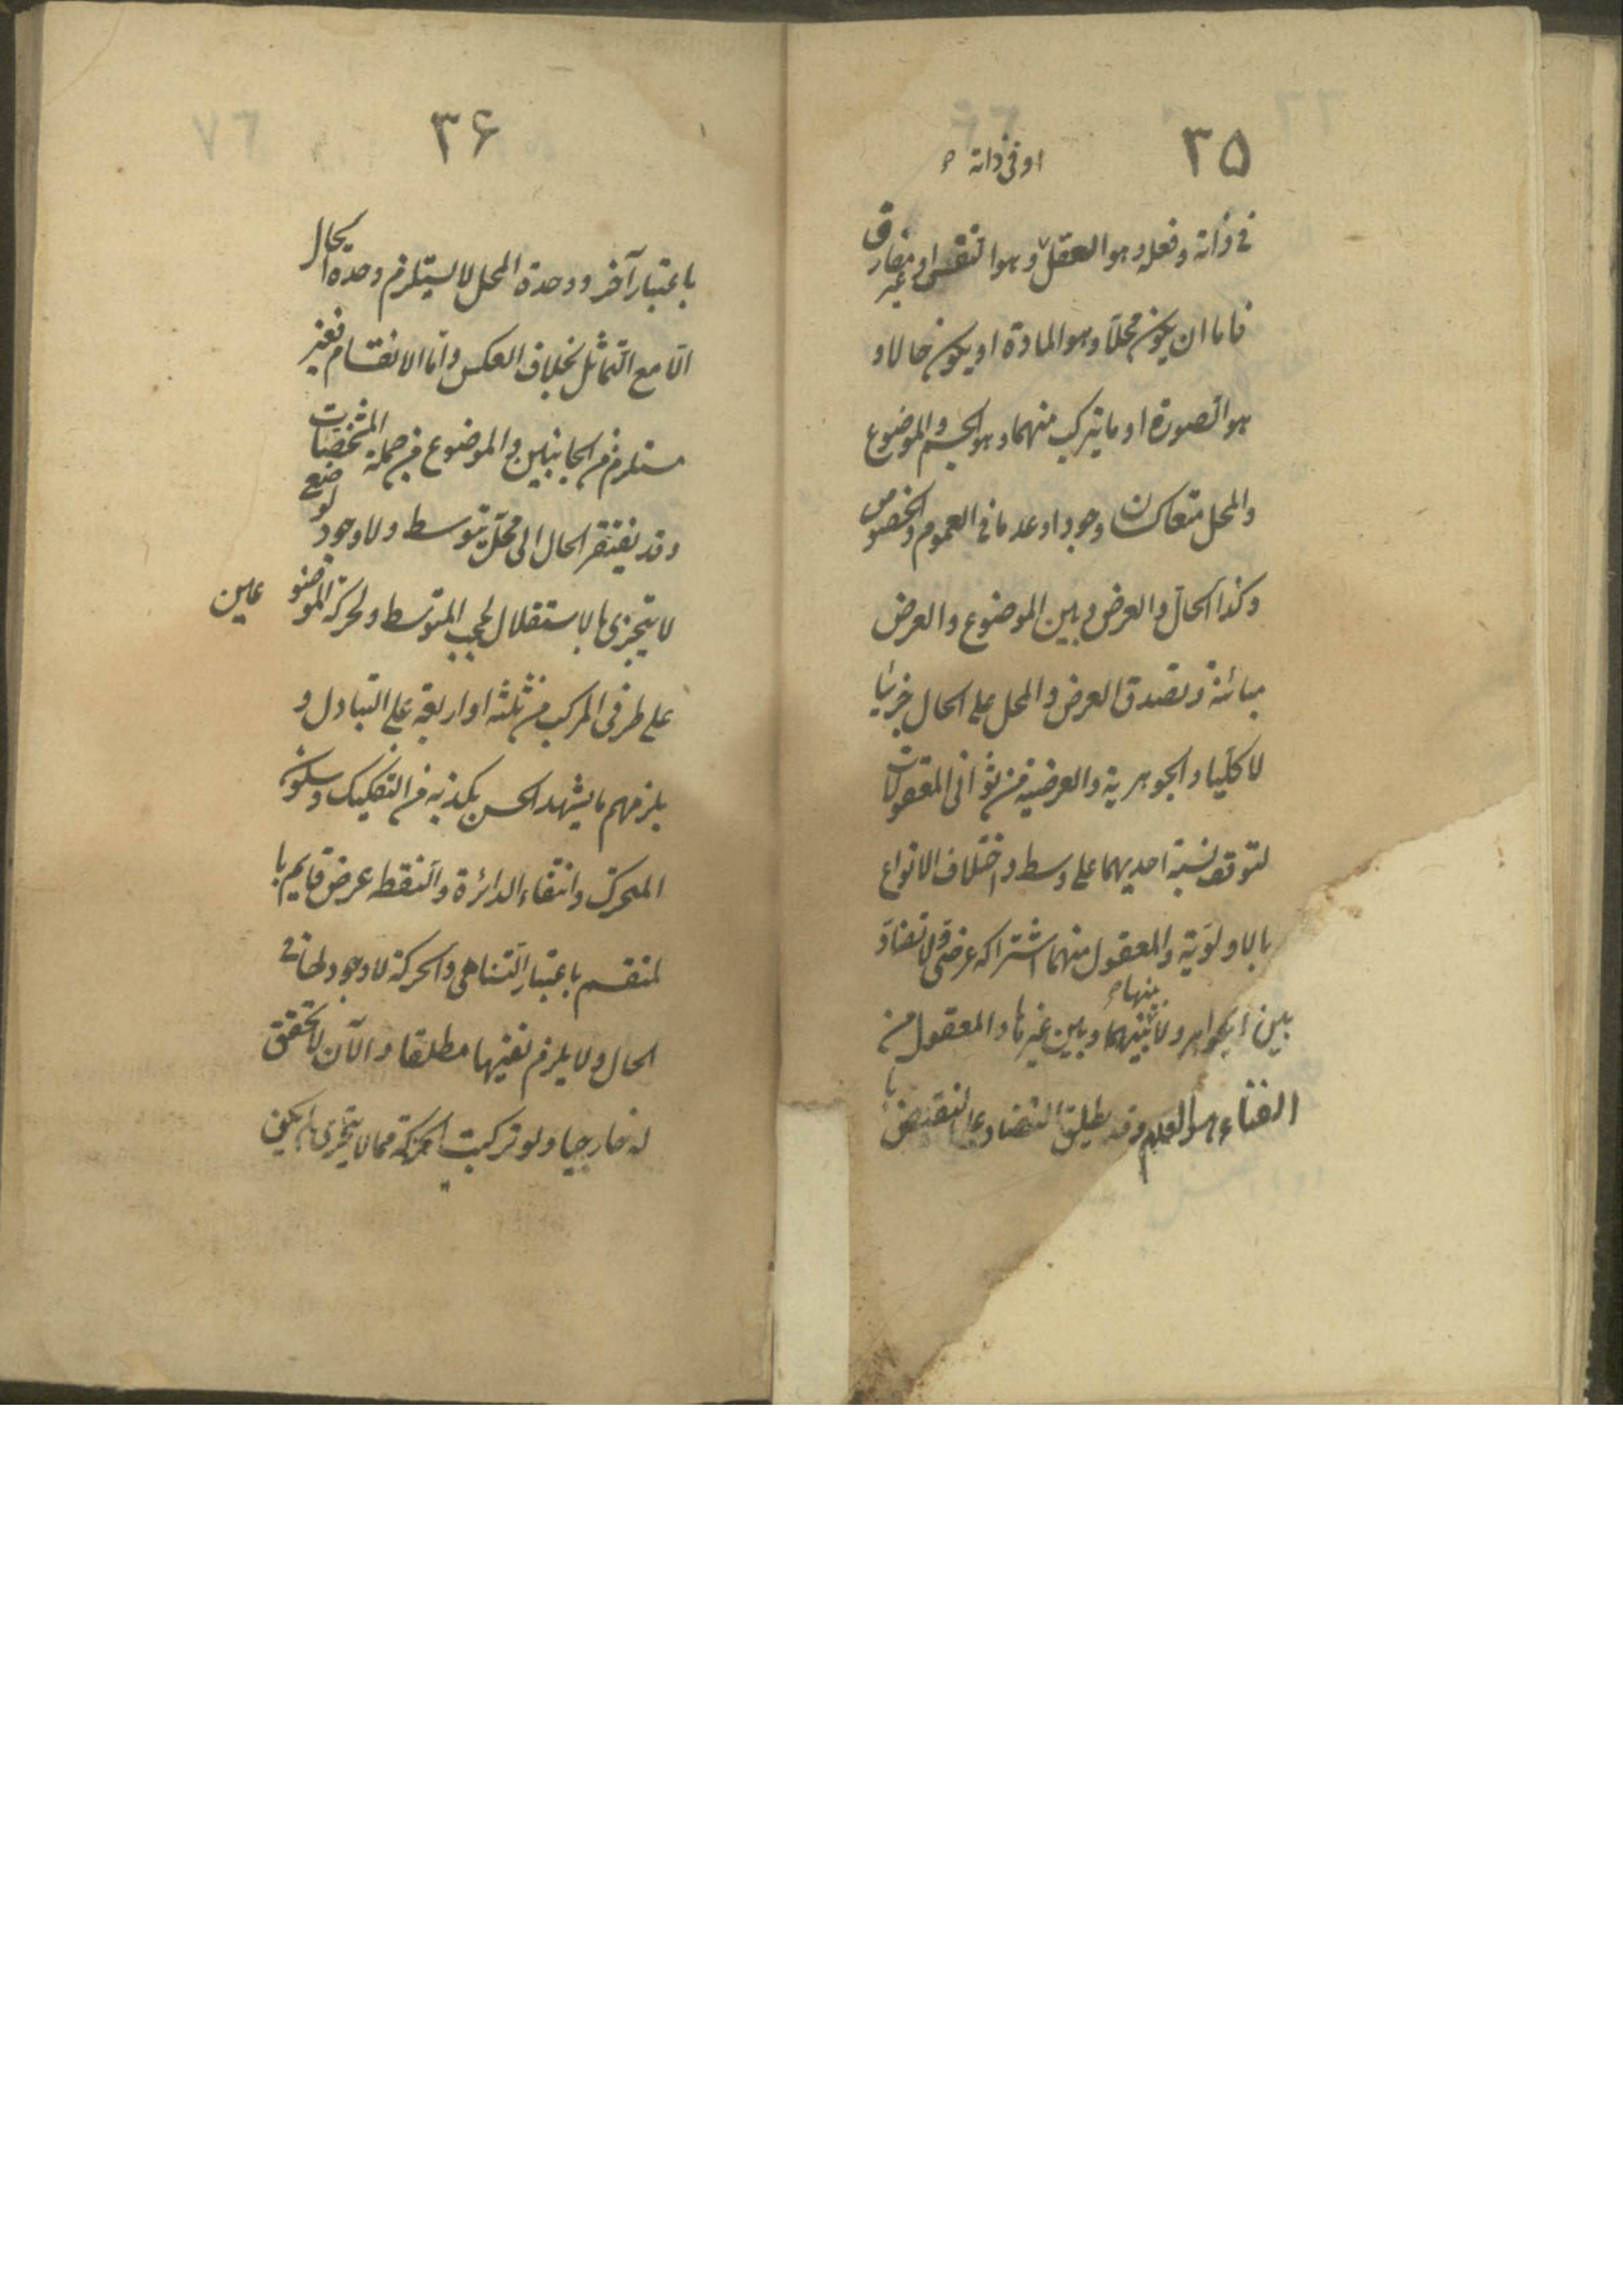 ٣٥
او فى ذاته
فى ذاته وفعله وهو العقل وهو النفس او غير مفارق
فاما ان يكون محلا وهو المادة او يكون حالا و
هو الصورة او ما يتركب منهما وهو الجسم والموضوع
والمحل متعاكسان وجودا وعدما فى العموم والخصوص
وكذا الحال والعرض وبين الموضوع والعرض
مباينة وتصدق العرض والمحل على الحال جزئيا
لا كليا والجوهرية والعرضية من ثوانى المعقولات
لتوقف نسبة احديهما على وسط واختلاف الانواع
بالاولوية والمعقول منهما اشتراكه عرضى ولا تضاد
منها
بين الجواهر ولا بينهما وبين غيرها والمعقول من
الفناء هو العدم وقد يطلق التضاد على النقيض با
٣۶
باعتبار آخر ووحدة المحل لا يستلزم وحدة الحال
الا مع التماثل بخلاف العكس واما الانقسام فغير
مستلزم من الجانبين والموضوع من جملة المشخصات
وقد يفتقر الحال الى محل بتوسط ولا وجود لوضع
لا يتجزى بالاستقلال لحجب المتوسط ولحركة الموضوعين
على طرفى المركب من ثلثة او اربعة على التبادل و
يلزمهم ما يشهد الحس بكذبه من التفكيك وسكون
المتحرك وانتفاء الدائرة والنقطه عرض قايم با
لمنقسم باعتبار التناهى والحركة لا وجود لها فى
الحال ولا يلزم نفيها مطلقا والآن لا تحقق
له خارجيا ولو تركبت الحركة مما لا يتجزى لم يكن